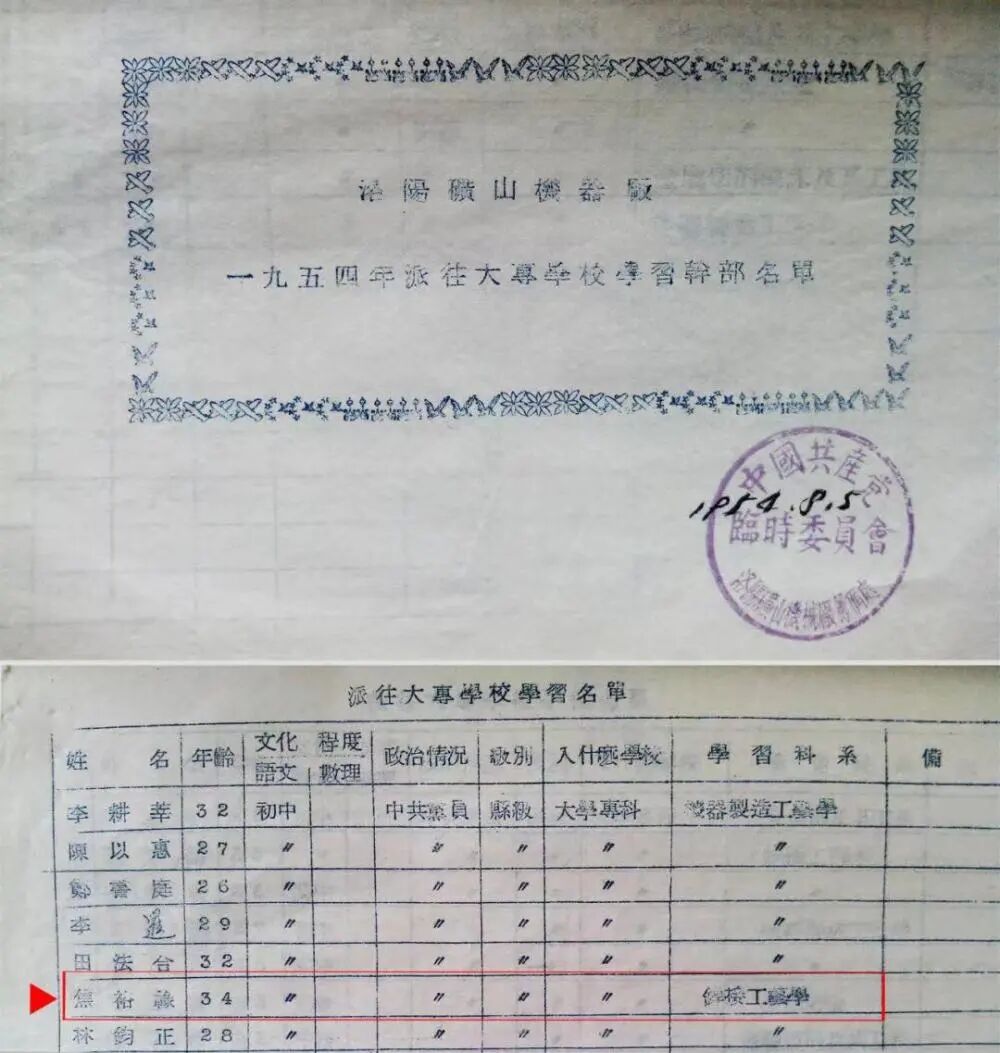 洛陽礦山機器廠
一九五四年派往大專學校學習幹部名單
中國共產党
1954.8.5
臨時委員會
洛陽礦山機械廠籌備處
派往大專學校學習名單
姓名 年齡 文化程度 政治情況 級別 入什麽學校 學習科系 備
語文 數理
李耕莘 32 初中 中共黨員 縣級 大學專科 機器製造工藝學
陳以惠 27 〃 〃 〃 〃 〃
鄭書庭 26 〃 〃 〃 〃 〃
李 29 〃 〃 〃 〃 〃
田法台 32 〃 〃 〃 〃 〃
焦裕祿 34 〃 〃 〃 〃 銲接工藝學
林鈞正 28 〃 〃 〃 〃 〃